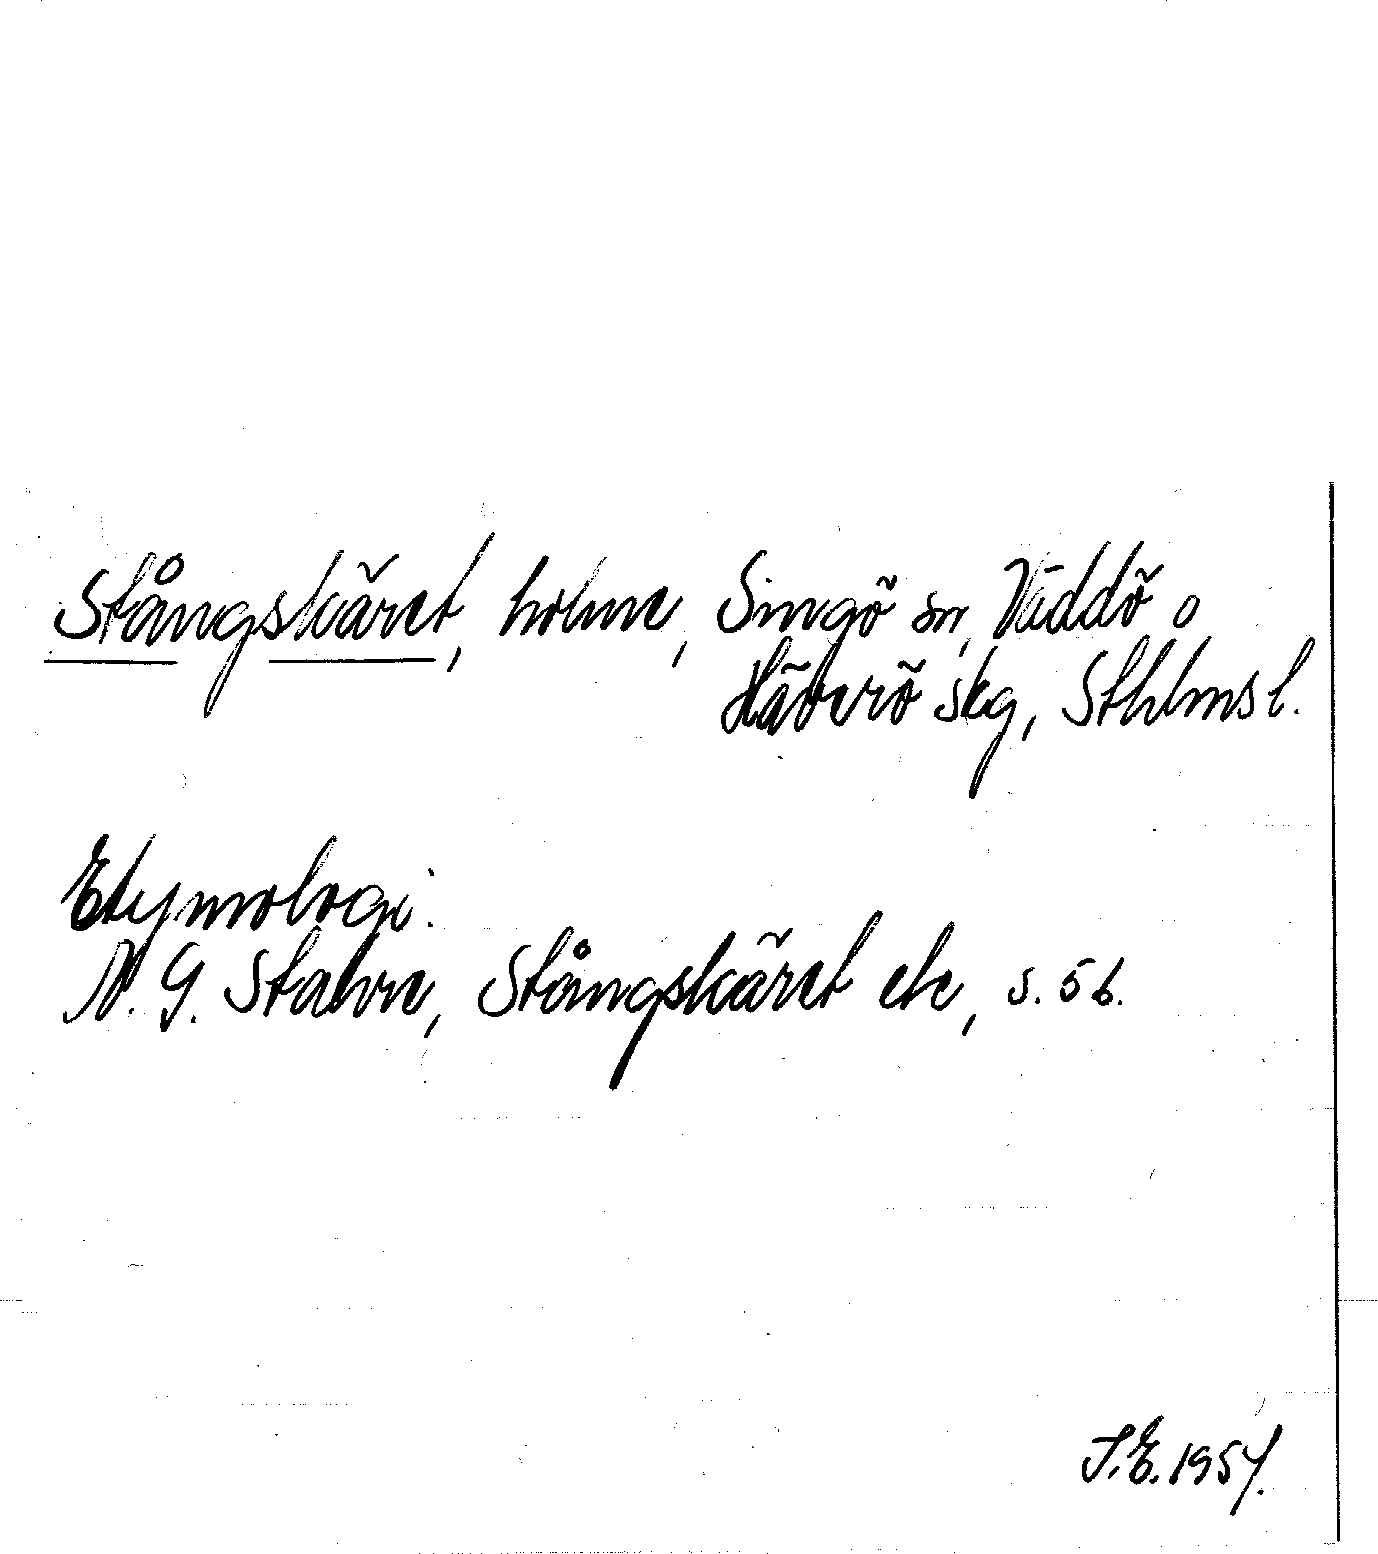 Stångskäret, holme, Singö sn, Väddö o
Häverö skg, Sthlms l.
Etymologi:
N. G. Stahre, Stångskäret etc, s. 56.
S.E. 1957.